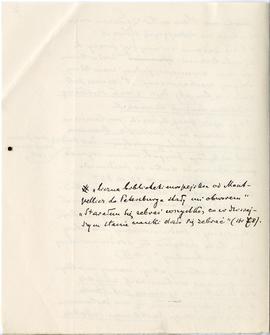 „Liczne biblioteki europejskie od Mont-
pellier do Petersburga stały mi otworem"
„Starałem się zebrać wszystko, co w dzisiej-
szym stanie nauki dało się zebrać"